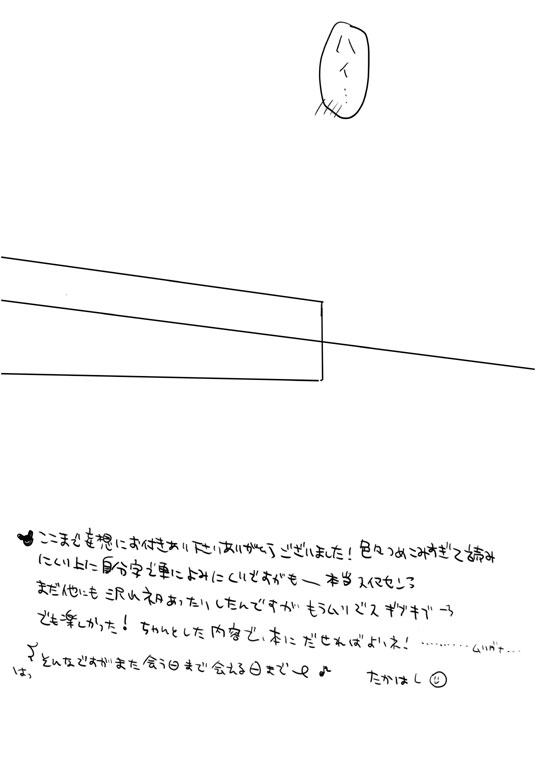 ハイ…
ここまで妄想にお付きあい下さいありがとうございました！色々つめこみすぎて読み
にくい上に自分字で更によみにくいですがもー 本当スイマセンる
まだ他にも沢山ネタあったりしたんですが もうムリでス ギブギブーっ
でも楽しかった！ちゃんとした内容で、本にだせればよいネ！………ムリかナ…
はっ
そんなですがまた会う日まで会える日まで〜♪ たかはし